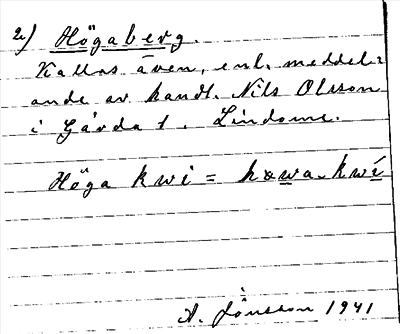 2) Högaberg.
Kallas även, enl. meddel-
ande av handl. Nils Olsson
i Gårda 1. Lindome.
Höga kwi = høwa-kwí
A. Jönsson 1941